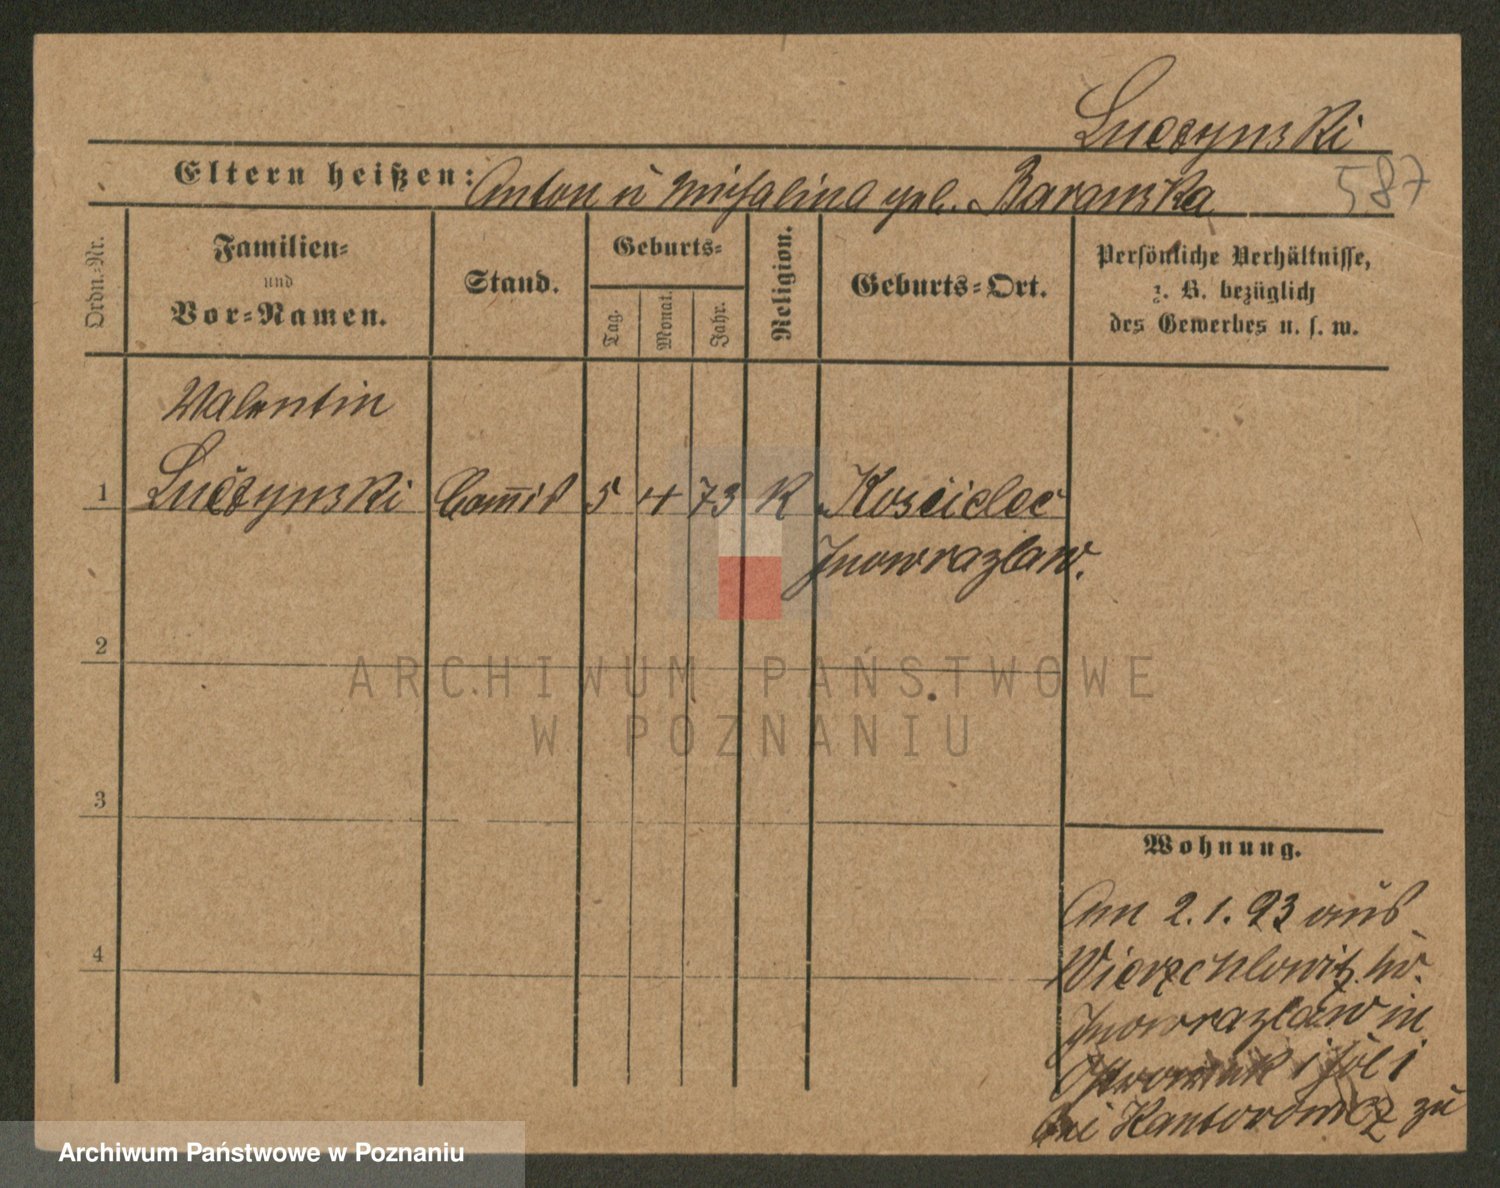 Luczynski
Eltern heißen: Anton u Michalina geb. Baranska
587
Ordn.=Nr.
Familien=
und
Vor=Namen.
Stand.
Geburts=
Tag.
Monat.
Jahr.
Religion.
Geburts=Ort.
Persönliche Verhältnisse,
z. B. bezüglich
des Gewerbes u. s. w.
Valentin
1 Luczynski Commis 5 4 73 K Koscielec
Inowrazlaw.
2
3
4
Wohnung.
Am 2.1.93 aus
Wierzchlowitz kr.
Inowrazlaw in
Ostrowek
bei Kantorowicz zu
ARCHIWUM PAŃSTWOWE
W POZNANIU
Archiwum Państwowe w Poznaniu